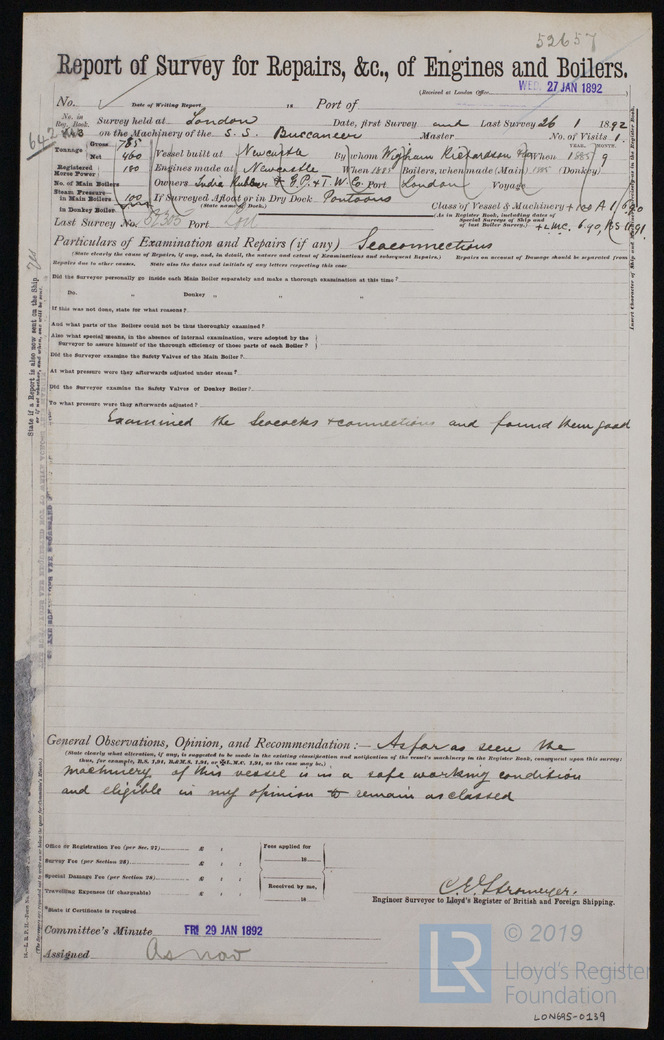 52657
Report of Survey for Repairs, &c., of Engines and Boilers.
(Received at London Office
WED. 27 JAN 1892
No. Date of Writing Report 18 Port of
No. in Reg. Book. Survey held at London Date, first Survey and Last Survey 26 1 1892
642 on the Machinery of the S. S. Buccaneer Master No. of Visits 1.
Tonnage Gross 785 Net 460 Vessel built at Newcastle By whom Wigham Richardson & Co When 1885 YEAR. 9 MONTH.
Registered Horse Power 100 Engines made at Newcastle When 1885 Boilers, when made (Main) 1885 (Donkey)
No. of Main Boilers Owners India Rubber & G.P. & T. W. Co. Port London Voyage
Steam Pressure in Main Boilers 100 If Surveyed Afloat or in Dry Dock Pontoons Class of Vessel & Machinery +100 A1
(State name of Dock.) (As in Register Book, including dates of Special Surveys of Ship and of last Boiler Survey.)
in Donkey Boiler
Last Survey No. 52305 Port Lon +LMC. 6.90,
Particulars of Examination and Repairs (if any) Seaconnections
(State clearly the cause of Repairs, if any, and, in detail, the nature and extent of Examinations and subsequent Repairs.) Repairs on account of Damage should be separated from
Repairs due to other causes. State also the dates and initials of any letters respecting this case
Did the Surveyor personally go inside each Main Boiler separately and make a thorough examination at this time?
Do. „ Donkey „ „ „
If this was not done, state for what reasons?
And what parts of the Boilers could not be thus thoroughly examined?
Also what special means, in the absence of internal examination, were adopted by the
Surveyor to assure himself of the thorough efficiency of those parts of each Boiler?
Did the Surveyor examine the Safety Valves of the Main Boiler?
At what pressure were they afterwards adjusted under steam?
Did the Surveyor examine the Safety Valves of Donkey Boiler?
To what pressure were they afterwards adjusted?
Examined the Seacocks & connections and found them good
General Observations, Opinion, and Recommendation:— As far as seen the
(State clearly what alteration, if any, is suggested to be made in the existing classification and notification of the vessel's machinery in the Register Book, consequent upon this survey:
thus, for example, B.S. 1,91, B.&M.S. 1,91, or ✠L.M.C. 1,91, as the case may be.)
machinery of this vessel is in a safe working condition
and eligible in my opinion to remain as classed
Office or Registration Fee (per Sec. 27) £ : : Fees applied for
18
Survey Fee (per Section 28) £ : :
Special Damage Fee (per Section 28) £ : : Received by me,
Travelling Expenses (if chargeable) £ : : 18
*State if Certificate is required
C. E. Stromeyer.
Engineer Surveyor to Lloyd's Register of British and Foreign Shipping.
Committee's Minute FRI 29 JAN 1892
Assigned As now
State if a Report is also now sent on the Ship
or if not whether, and when, one will be sent.
Insert Character of Ship and Machinery precisely as in the Register Book.
LR © 2019
Lloyd's Register
Foundation
LON695-0139